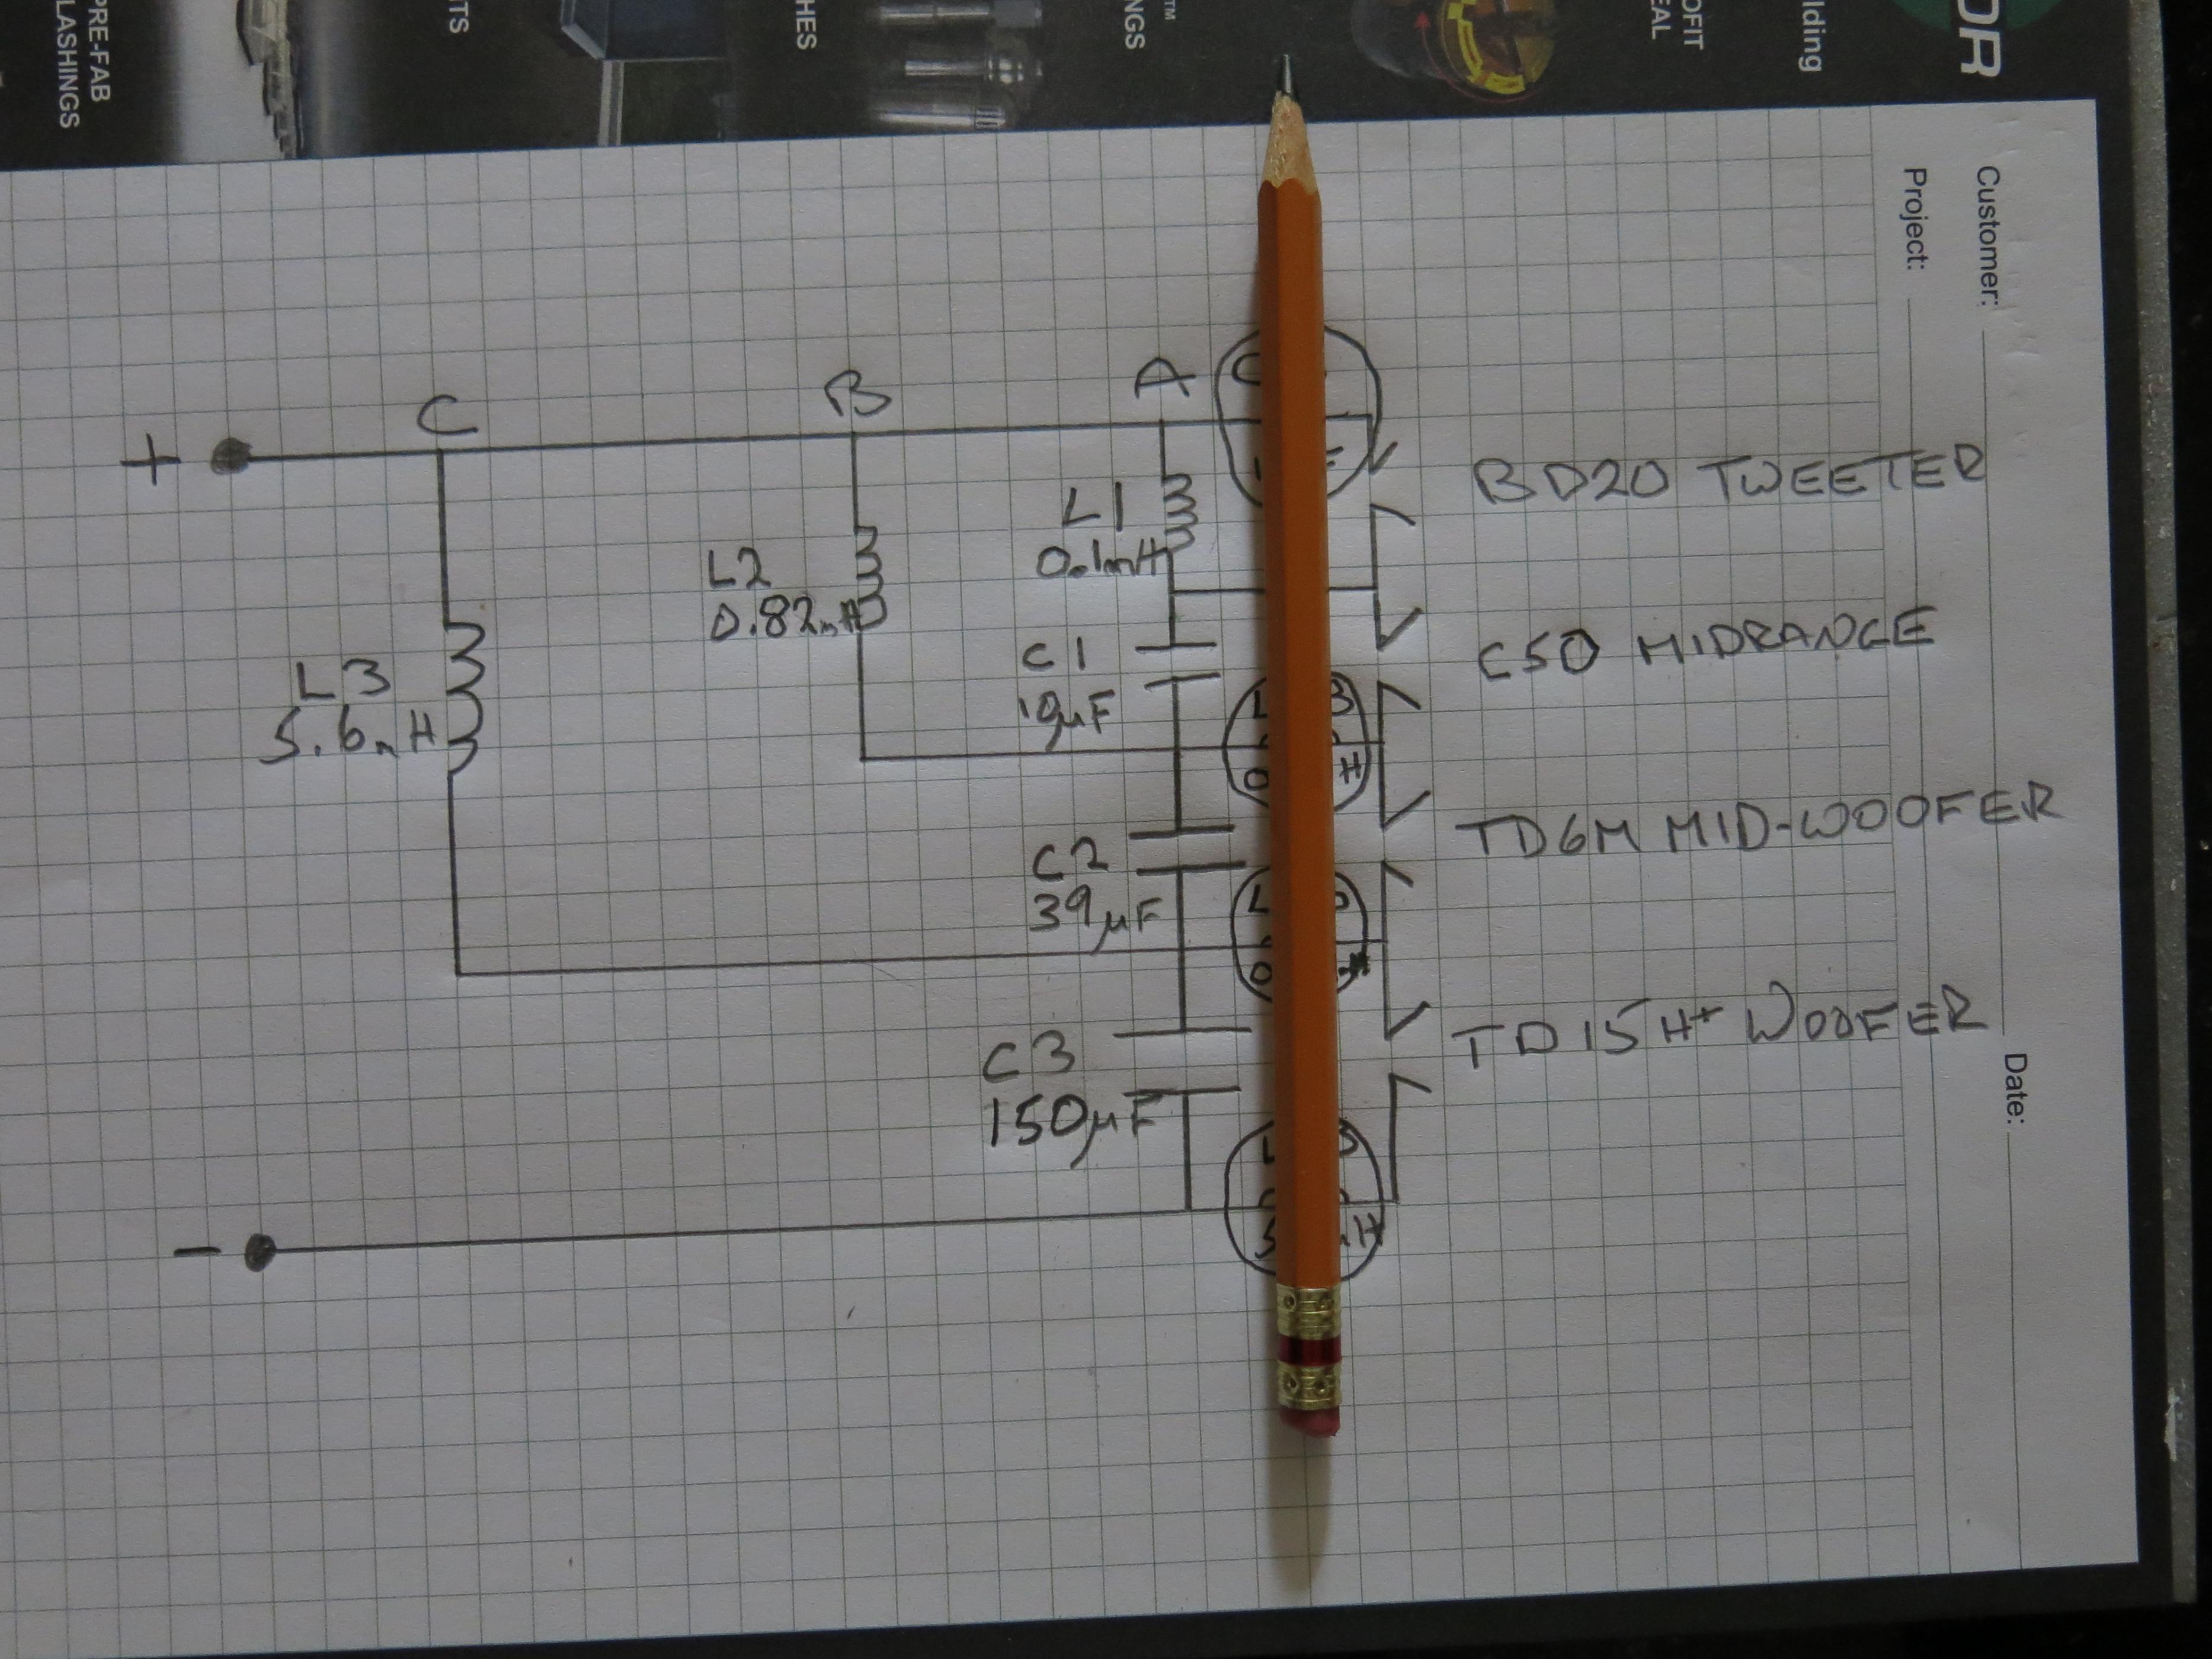 PRE-FAB
LASHINGS
TS
HES
NGS
™
OFIT
EAL
lding
OR
Customer:
Project:
Date:
C
B
A
+
BD20 TWEETER
L1
0.1mH
L2
0.82mH
C50 MIDRANGE
L3
5.6mH
C1
10µF
H
TD6M MID-WOOFER
C2
39µF
TD15H+ WOOFER
C3
150µF
H
-